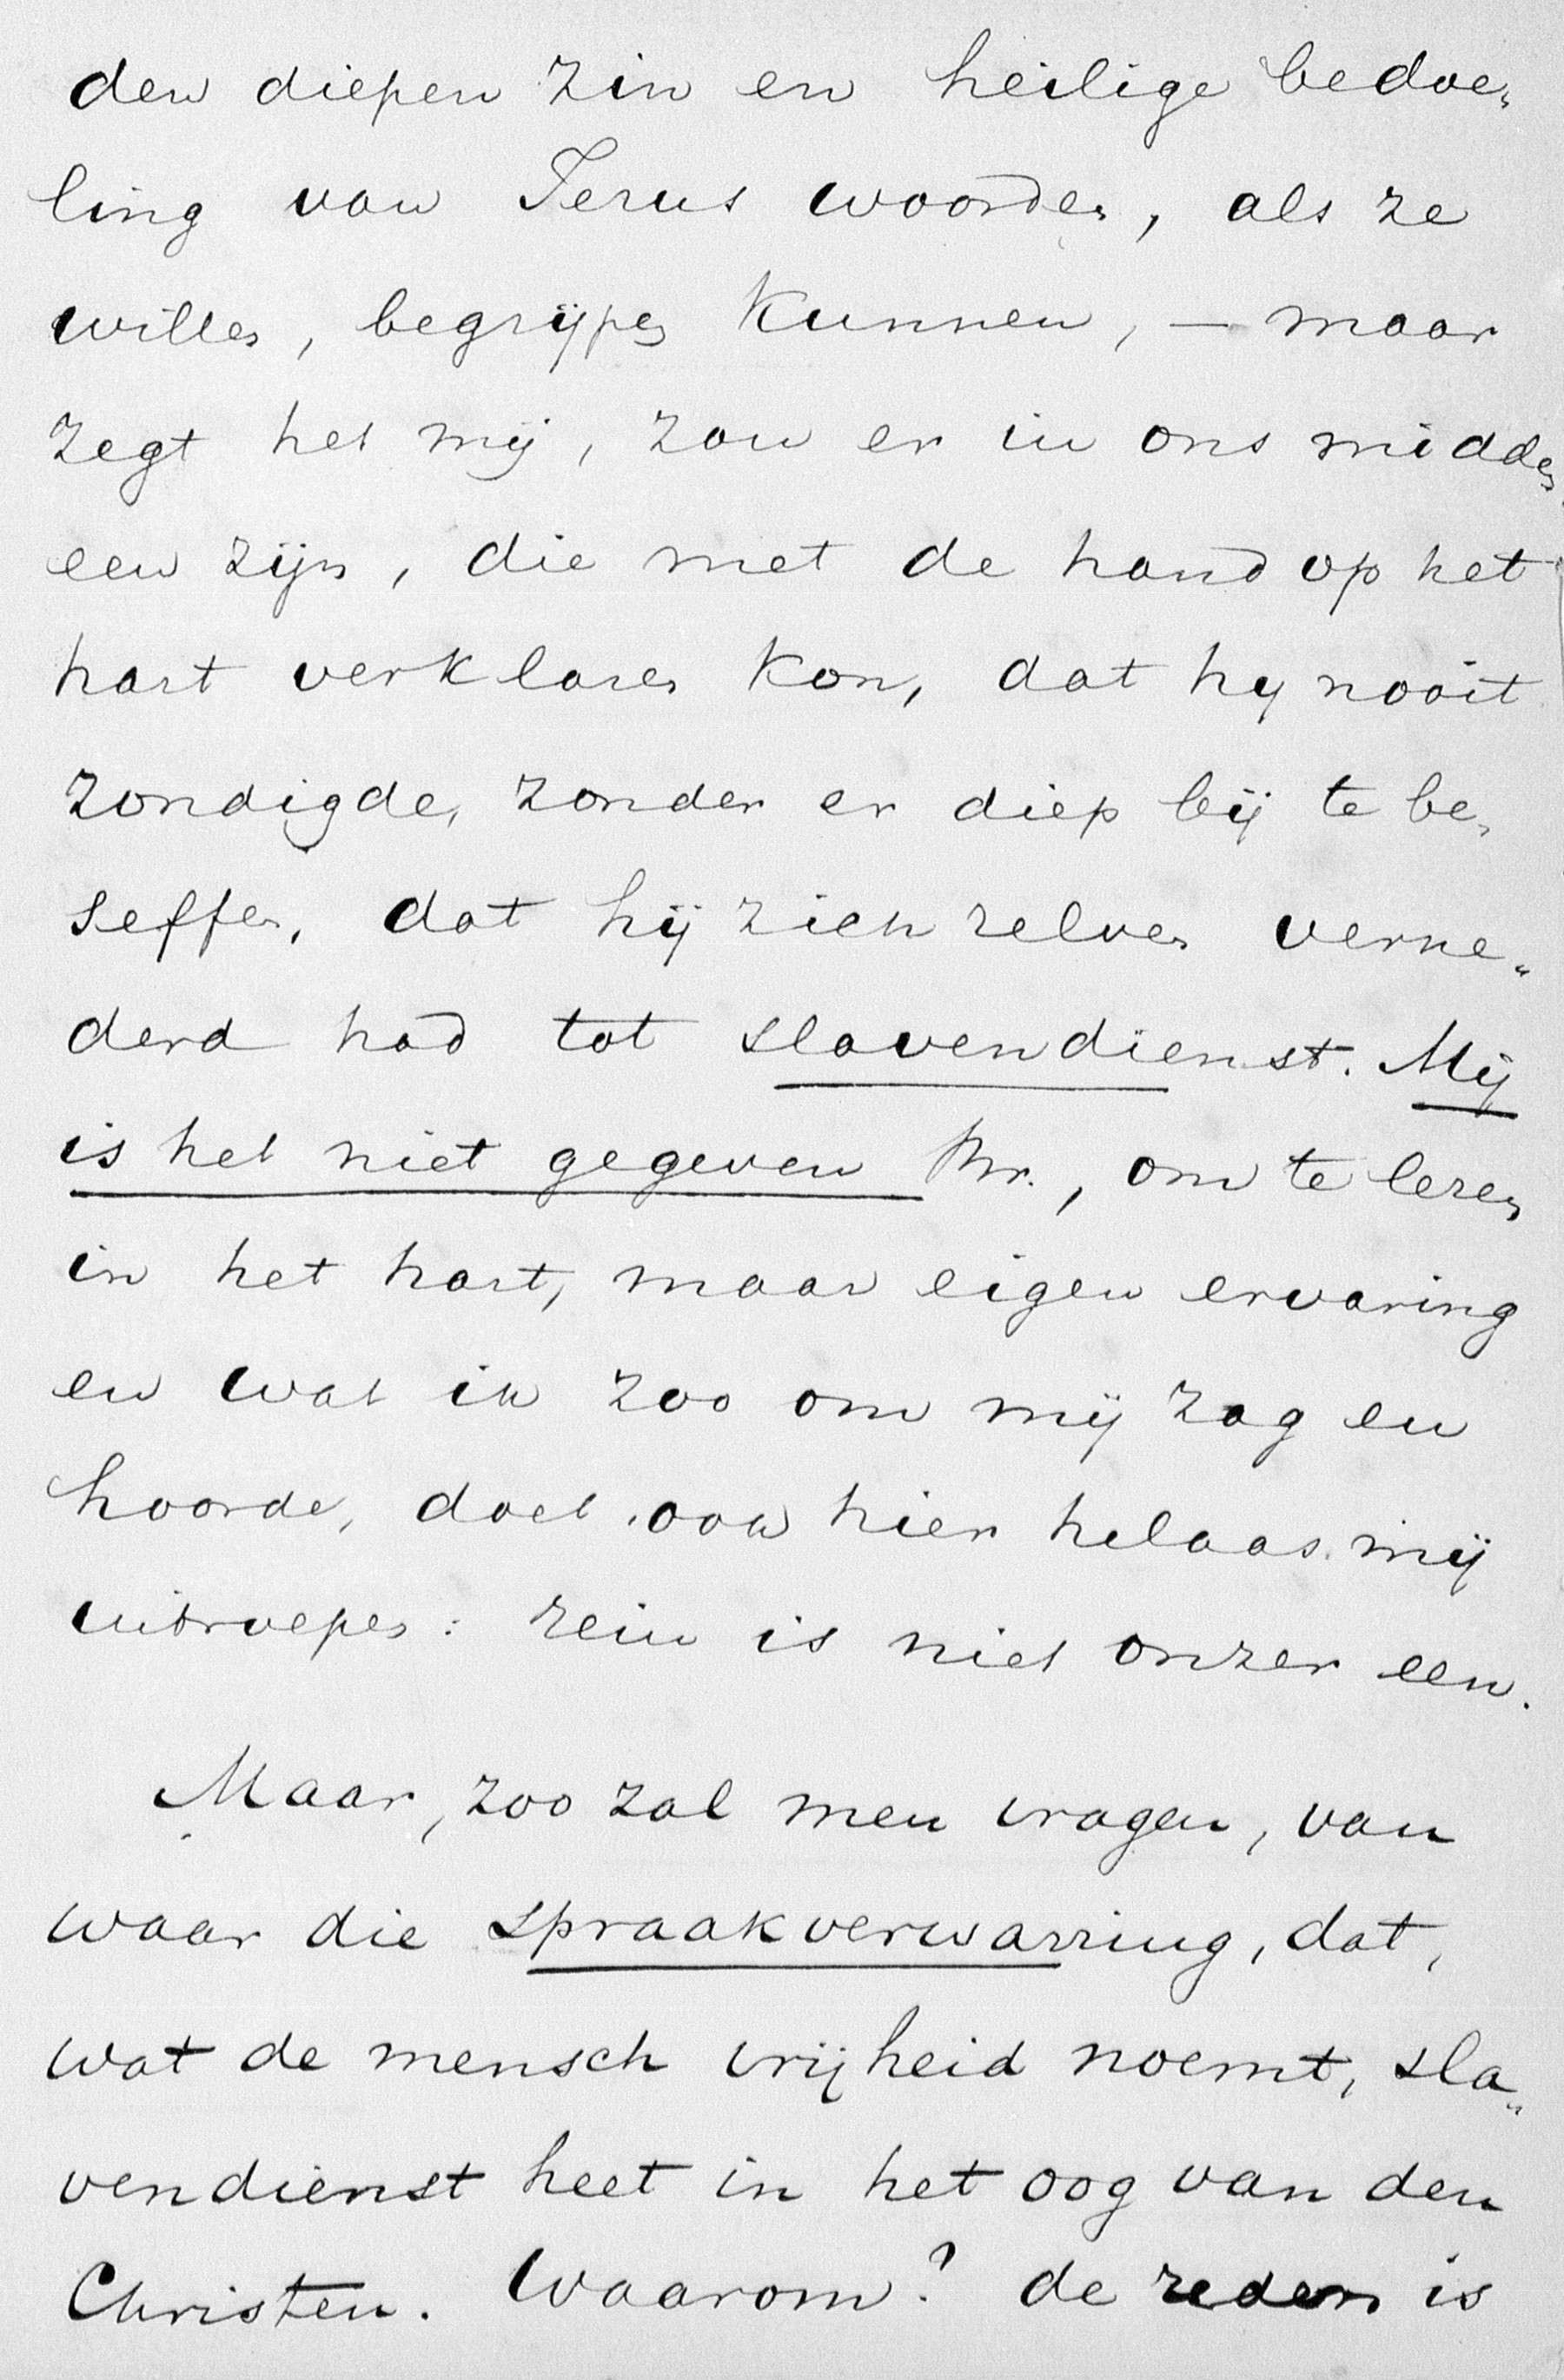 den diepen zin en heilige bedoe„
ling van Jezus woorden, als ze
willen, begrijpen kunnen, — maar
zegt het mij, zou er in ons midden
een zijn, die met de hand op het
hart verklaren kon, dat hij nooit
zondigde, zonder er diep bij te be„
seffen, dat hij zich zelven verne„
derd had tot slavendienst. Mij
is het niet gegeven Br., om te lezen
in het hart, maar eigen ervaring
en wat ik zoo om mij zag en
hoorde, doet ook hier helaas mij
uitroepen: rein is niet onzer een.
Maar, zoo zal men vragen, van
waar die spraakverwarring, dat,
wat de mensch vrijheid noemt, sla„
vendienst heet in het oog van den
Christen. Waarom? de reden is